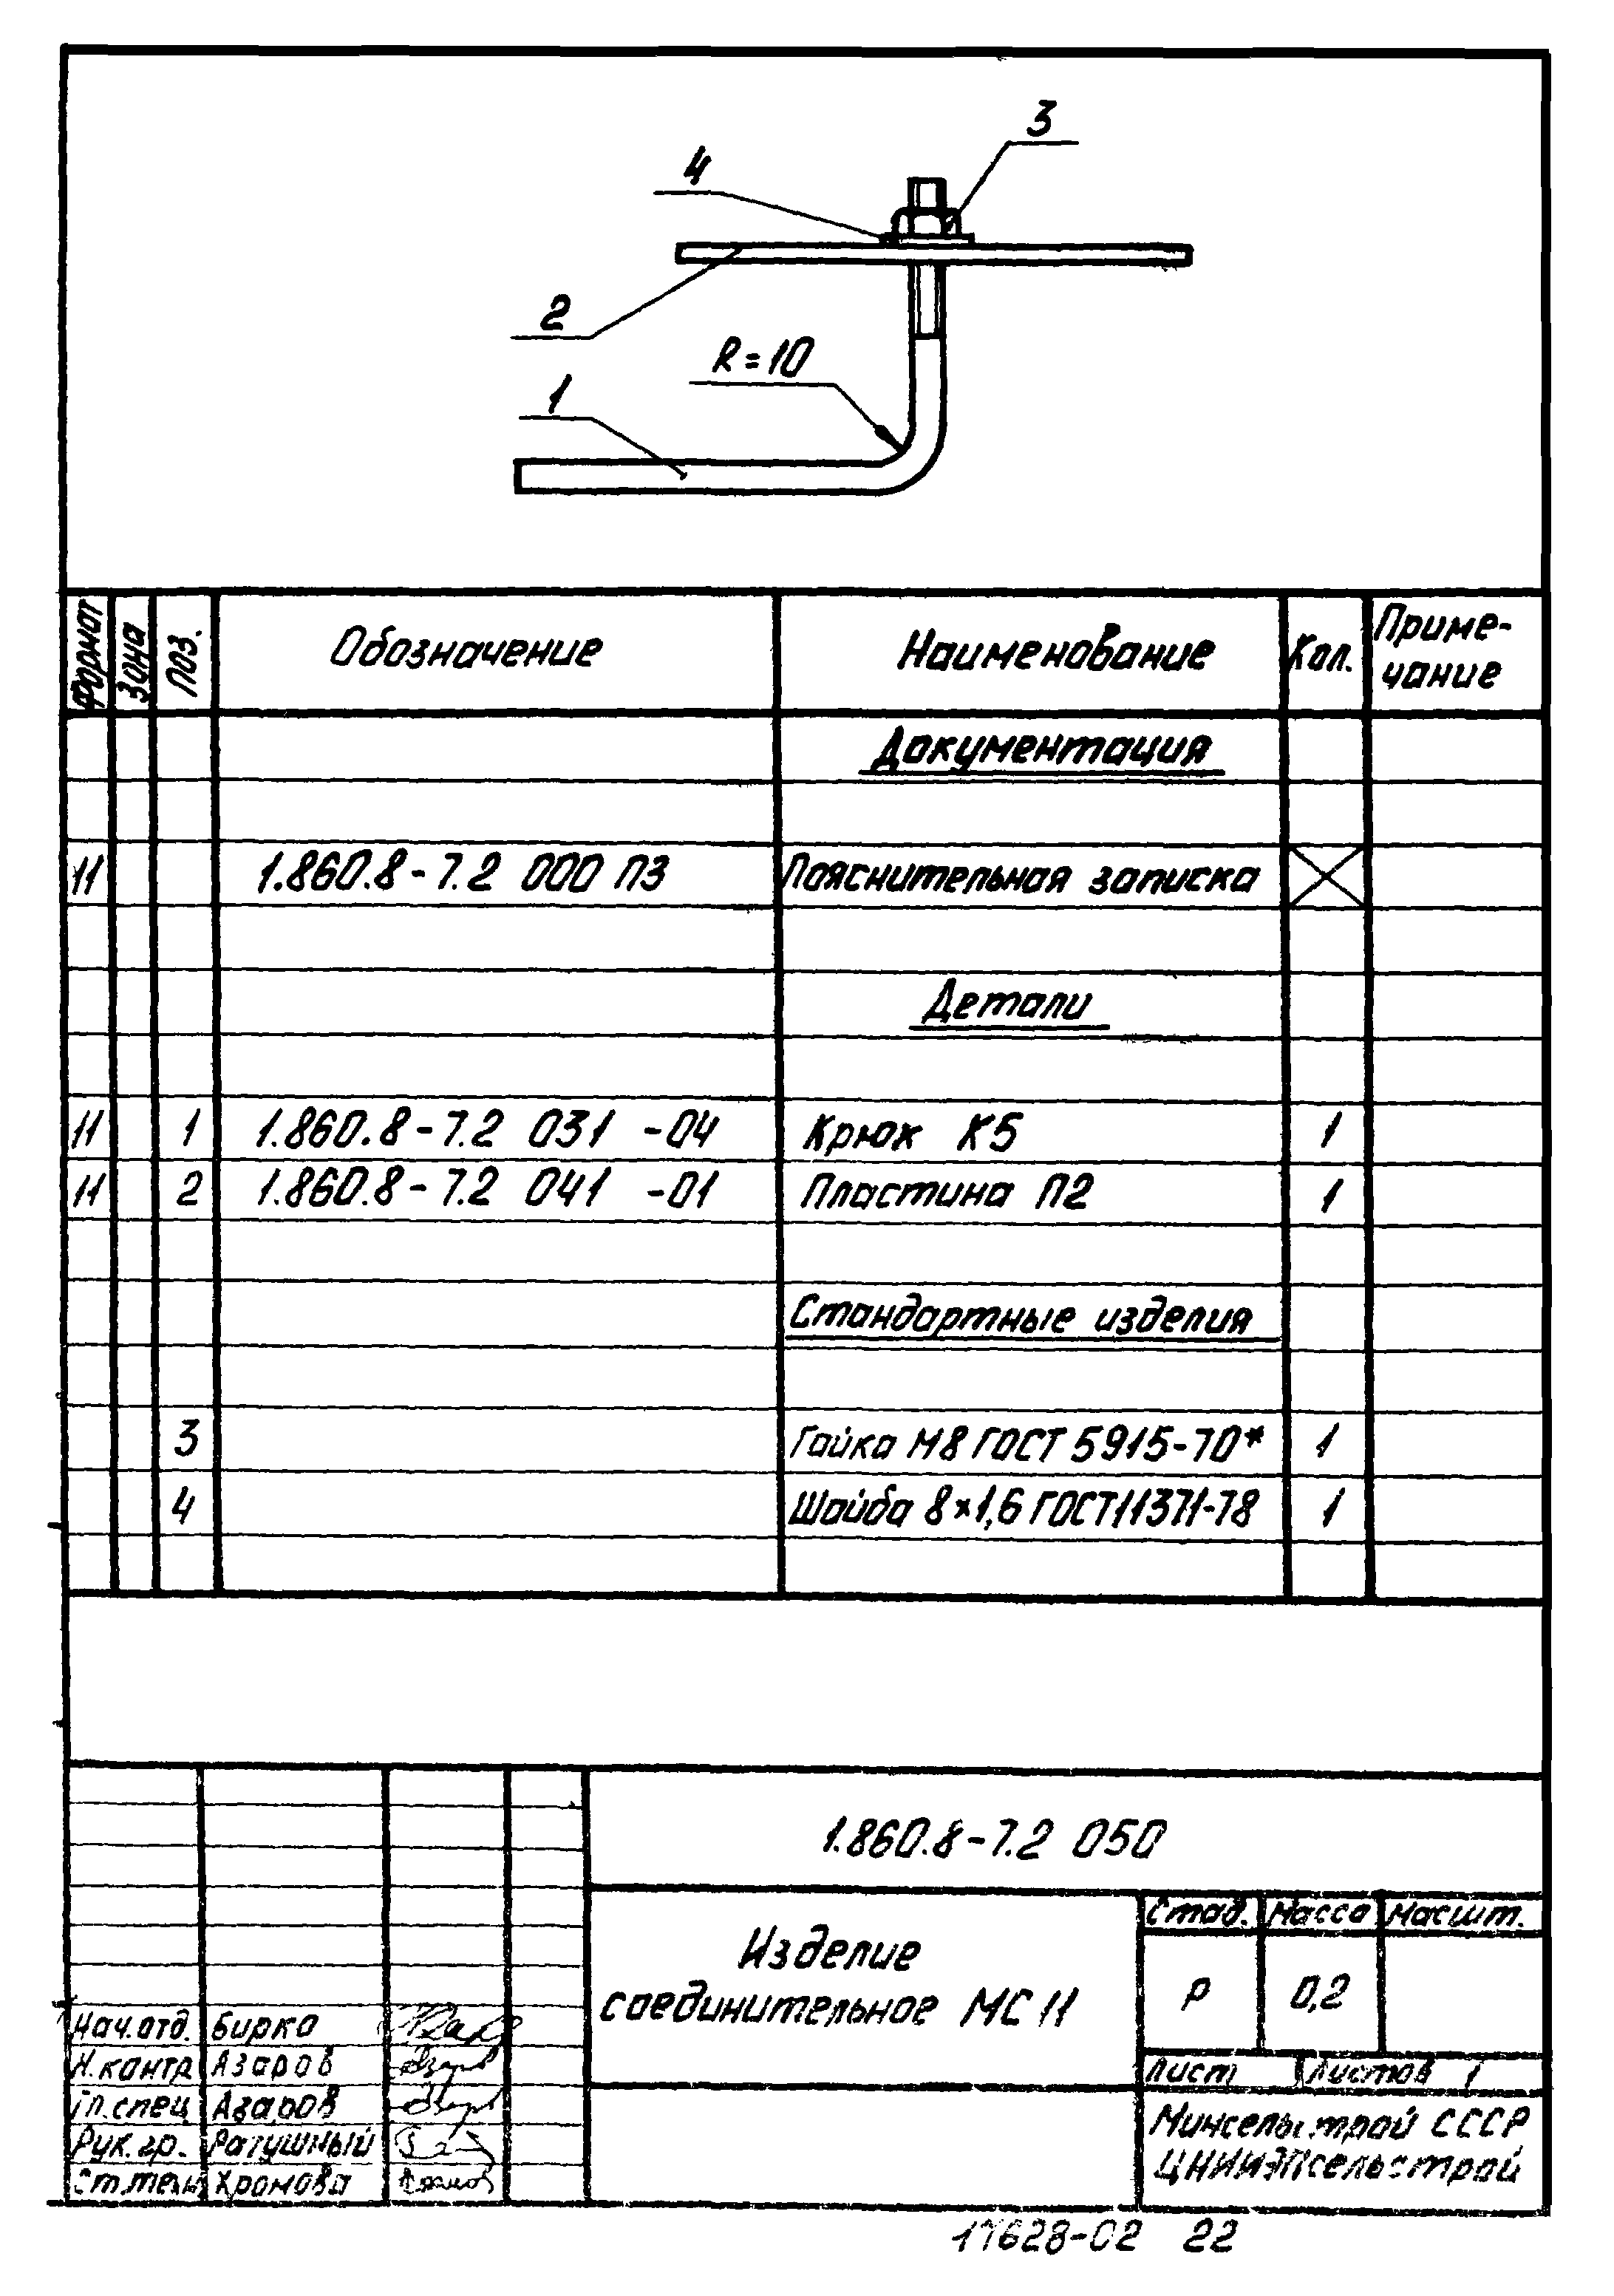 3
4
2
R=10
1
Формат Зона Поз. Обозначение Наименование Кол. Приме-
чание
Документация
11 1.860.8-7.2 000 ПЗ Пояснительная записка
Детали
11 1 1.860.8-7.2 031 -04 Крюк К5 1
11 2 1.860.8-7.2 041 -01 Пластина П2 1
Стандартные изделия
3 Гайка М8 ГОСТ 5915-70* 1
4 Шайба 8×1,6 ГОСТ 11371-78 1
1.860.8-7.2 050
Изделие
соединительное МС 11
Стад. Масса Масшт.
Р 0,2
Лист Листов 1
Нач.отд. Бирка
Н.контр Азаров
Гл.спец Азаров
Рук.гр. Ратушный
Ст.техн Хромова
Минсельстрой СССР
ЦНИИЭПсельстрой
17628-02 22